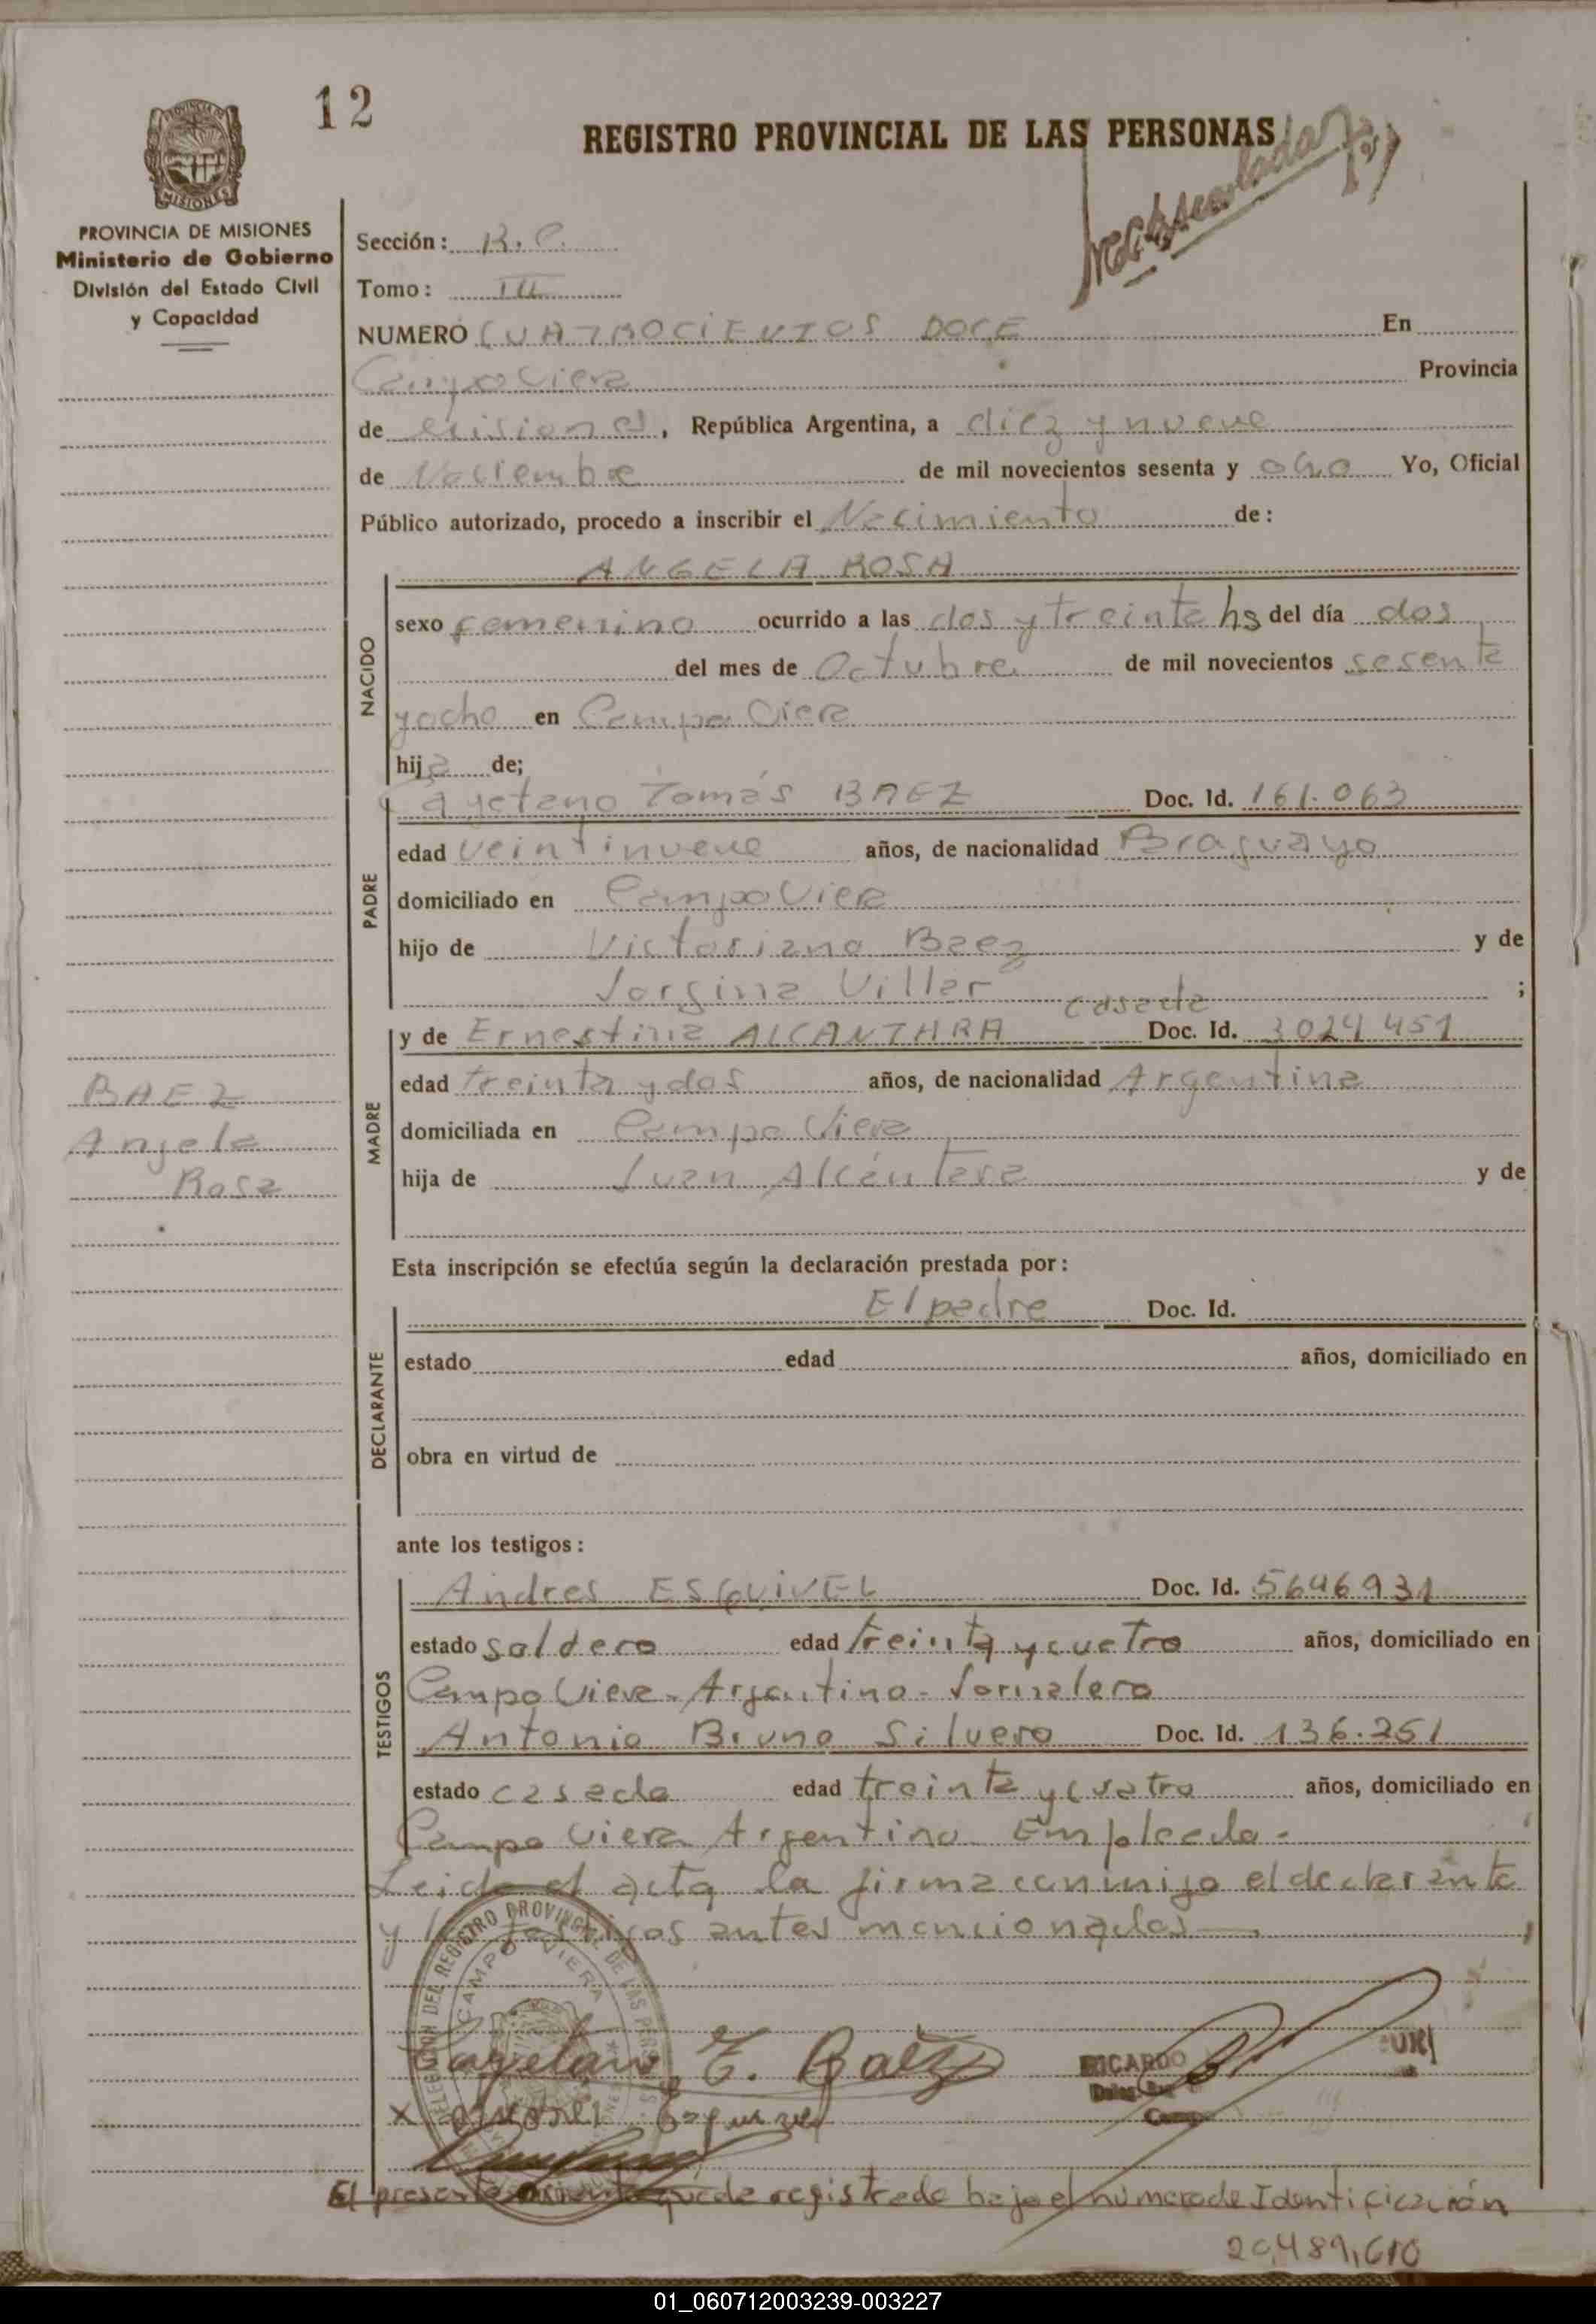 12
REGISTRO PROVINCIAL DE LAS PERSONAS
PROVINCIA DE MISIONES
Ministerio de Gobierno
División del Estado Civil
y Capacidad
Sección:
Tomo: III
NUMERO CUATROCIENTOS DOCE En
Campo Viera Provincia
de Misiones, República Argentina, a diez y nueve
de Noviembre de mil novecientos sesenta y ocho Yo, Oficial
Público autorizado, procedo a inscribir el Nacimiento de:
ANGELA ROSA
NACIDO
sexo femenino ocurrido a las dos y treinta hs del día dos
del mes de Octubre de mil novecientos sesenta
y ocho en Campo Viera
hija de;
PADRE
Cayetano Tomás BAEZ Doc. Id. 161.063
edad veintinueve años, de nacionalidad Braguayo
domiciliado en Campo Viera
hijo de Victoriano Baez y de
Jorgina Villar ;
casada
MADRE
y de Ernestina ALCANTARA Doc. Id. 3024451
edad treinta y dos años, de nacionalidad Argentina
domiciliada en Campo Viera
hija de Juan Alcántara y de
BAEZ
Angela
Rosa
Esta inscripción se efectúa según la declaración prestada por:
DECLARANTE
El padre Doc. Id.
estado edad años, domiciliado en
obra en virtud de
ante los testigos:
TESTIGOS
Andres ESQUIVEL Doc. Id. 5646931
estado soldero edad treinta y cuatro años, domiciliado en
Campo Viera - Argentino - Jornalero
Antonio Bruno Silvero Doc. Id. 136.251
estado casado edad treinta y cuatro años, domiciliado en
Campo Viera Argentino Empleado -
Leida el acta la firma conmigo el declarante
y los testigos antes mencionados
DELEGACION DEL REGISTRO PROVINCIAL DE LAS PERSONAS
CAMPO VIERA
Cayetano T. Baez
RICARDO
x Andres Esquivel
El presente asiento queda registrado bajo el número de Identificación
20,489,610
01_060712003239-003227